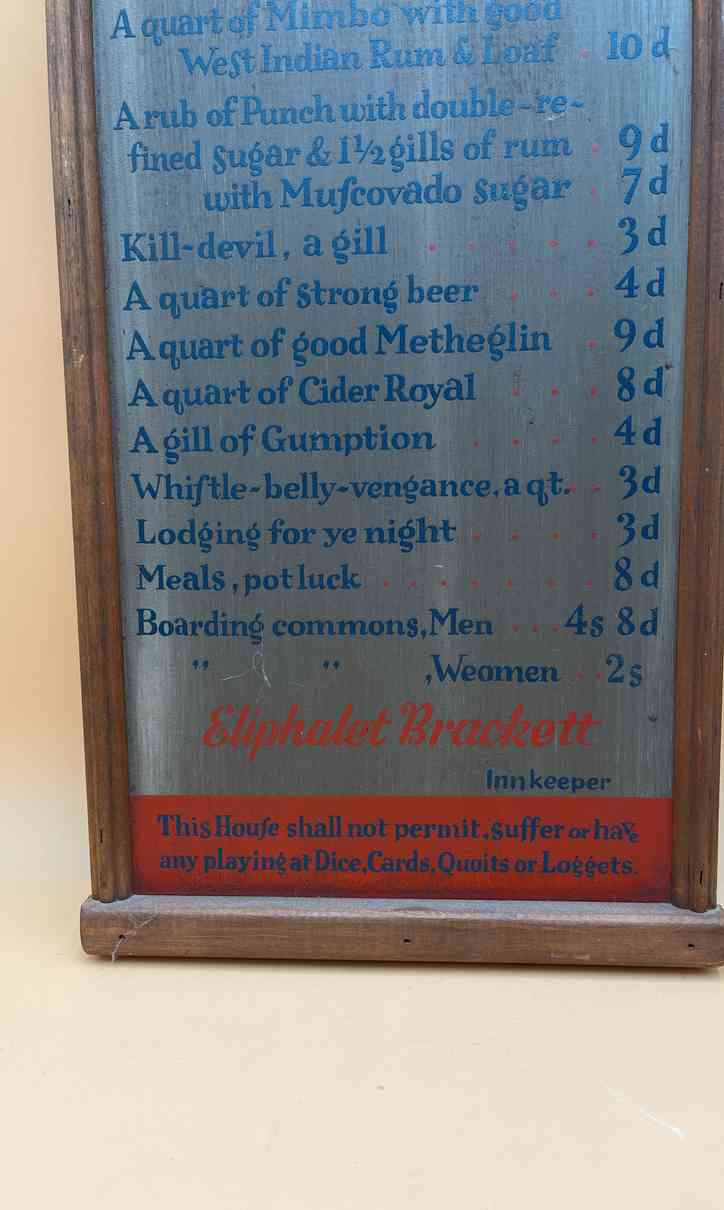 A quart of Mimbo with good
West Indian Rum & Loaf . 10 d
A rub of Punch with double-re-
fined sugar & 1½ gills of rum . 9 d
with Muſcovado sugar . 7 d
Kill-devil, a gill . . . . . 3 d
A quart of strong beer . . . 4 d
A quart of good Metheglin . 9 d
A quart of Cider Royal . . . 8 d
A gill of Gumption . . . . 4 d
Whiſtle-belly-vengance, a qt. . . 3d
Lodging for ye night . . . . 3d
Meals, pot luck . . . . . . . 8 d
Boarding commons, Men . . . 4s 8d
" " , Weomen . . 2 s
Eliphalet Brackett
Innkeeper
This Houſe shall not permit, suffer or have
any playing at Dice, Cards, Quoits or Loggets.